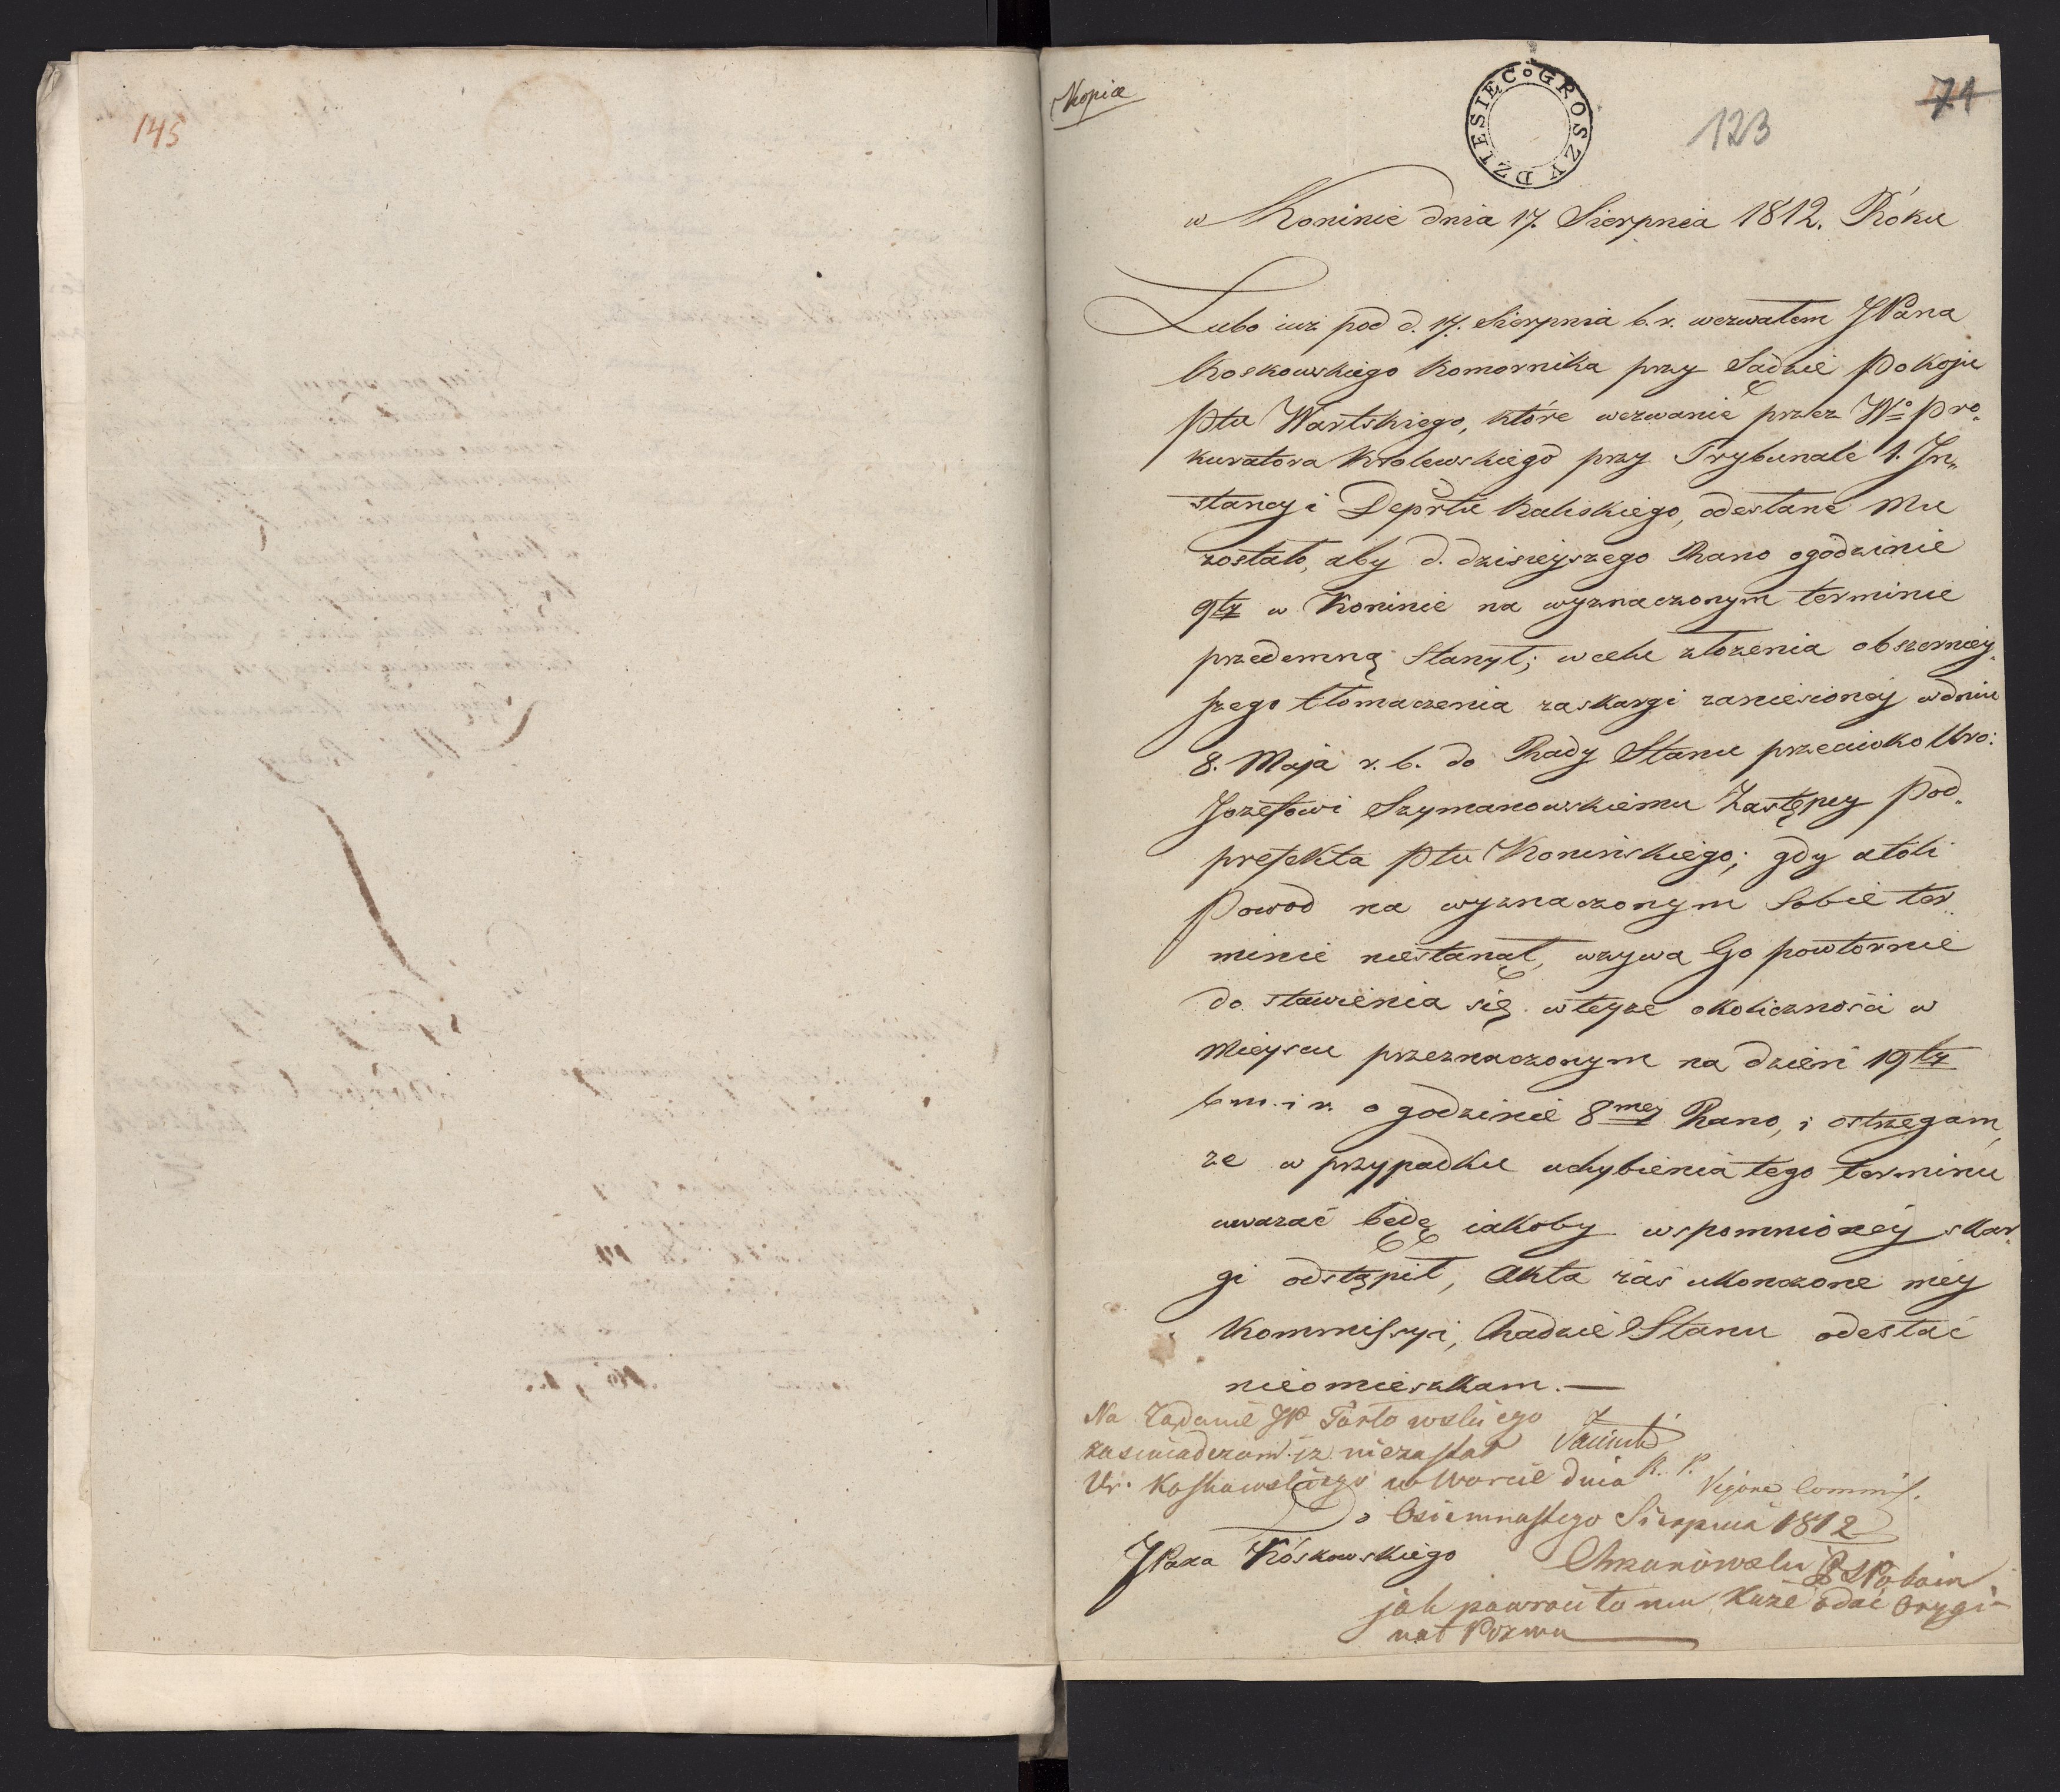 145
Kopia
DZIESIĘC GROSZY
123
71
w Koninie dnia 17. Sierpnia 1812. Roku
Lubo iuz pod d. 17. Sierpnia b. r. wezwałem JPana
Koskowskiego Komornika przy Sądzie Pokoju
Ptu Wartskiego, które wezwanie przez Wo Pro„
kuratora Krolewskiego przy Trybunale 1. In„
stancyi Deprtu Kaliskiego, odesłane Mu
zostało, aby d. dzisieyszego Rano ogodzinie
9ty w Koninie na wyznaczonym terminie
przedemną Stanył; w celu złożenia obszerniey„
szego tłomaczenia zaskargi zaniesioney w dniu
8. Maja r. b. do Rady Stanu przeciwko Uro:
Jozefowi Szymanowskiemu Zastępcy Pod„
prefekta Ptu Konińskiego; gdy atoli
Powod na wyznaczonym Sobie ter„
minie niestanął, wzywa Go powtornie
do stawienia się w teyże okoliczności w
Mieyscu przeznaczonym na dzień 19ty
b m. i r. o godzinie 8mey Rano, i ostrzegam,
ze w przypadku uchybienia tego terminu
uwazać będę iakoby wspomnioney skar„
gi odstąpił, Akta zaś ukonczone mey
Kommissyi, Radzie Stanu odesłać
nieomieszkam. —
Na Ządanie JP
zaswiadczam iz niezastał
Ur. Koskowskiego w Warcie dnia
R. P.
Osiemnastego Sierpnia 1812
Do
JPana Kóskowskiego
Chrzanowski
jak powroci to mu Każe odać Orygi-
nał Pozwu